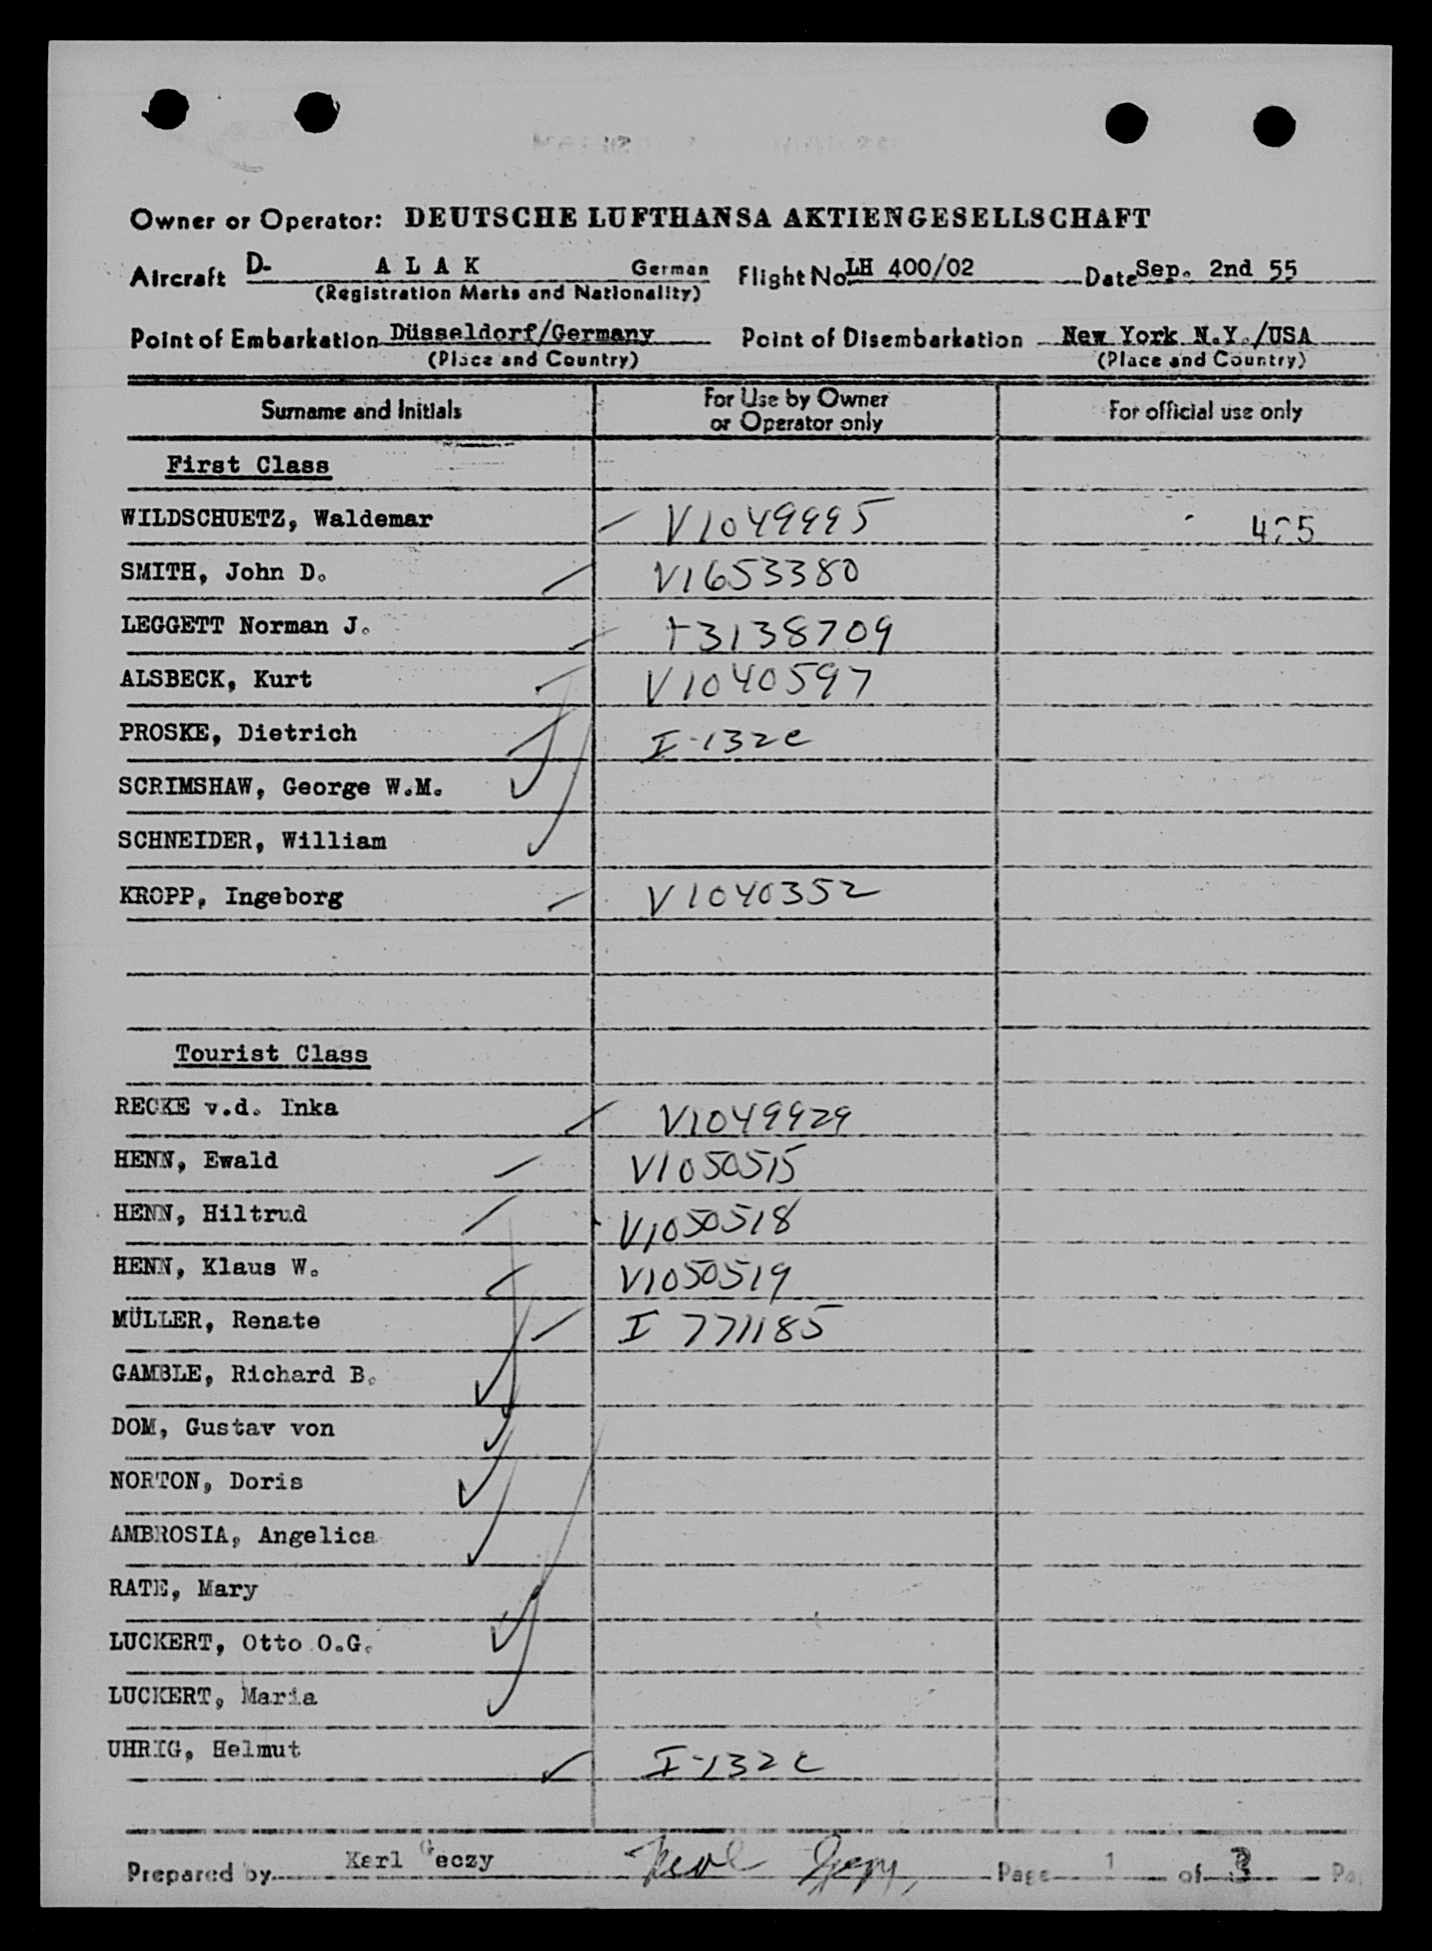 Owner or Operator: DEUTSCHE LUFTHANSA AKTIENGESELLSCHAFT
Aircraft D- A L A K German Flight No. LH 400/02 Date Sep. 2nd 55
(Registration Marks and Nationality)
Point of Embarkation Düsseldorf/Germany Point of Disembarkation New York N.Y./USA
(Place and Country) (Place and Country)
Surname and Initials For Use by Owner or Operator only For official use only
First Class
WILDSCHUETZ, Waldemar V1049995
SMITH, John D. V1653380
LEGGETT Norman J. +3138709
ALSBECK, Kurt V1040597
PROSKE, Dietrich I-132c
SCRIMSHAW, George W.M.
SCHNEIDER, William
KROPP, Ingeborg V1040352
Tourist Class
RECKE v.d. Inka V1049929
HENN, Ewald V1050515
HENN, Hiltrud V1050518
HENN, Klaus W. V1050519
MÜLLER, Renate I 771185
GAMBLE, Richard B.
DOM, Gustav von
NORTON, Doris
AMBROSIA, Angelica
RATE, Mary
LUCKERT, Otto O.G.
LUCKERT, Maria
UHRIG, Helmut I-132c
Prepared by Karl Geczy Page 1 of 3